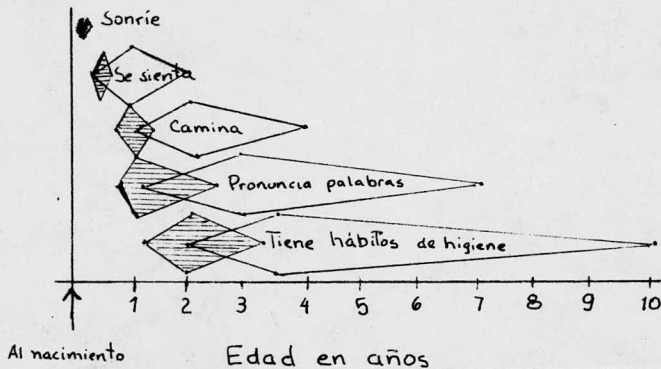 Sonríe
Se sienta
Camina
Pronuncia palabras
Tiene hábitos de higiene
1 2 3 4 5 6 7 8 9 10
Al nacimiento
Edad en años